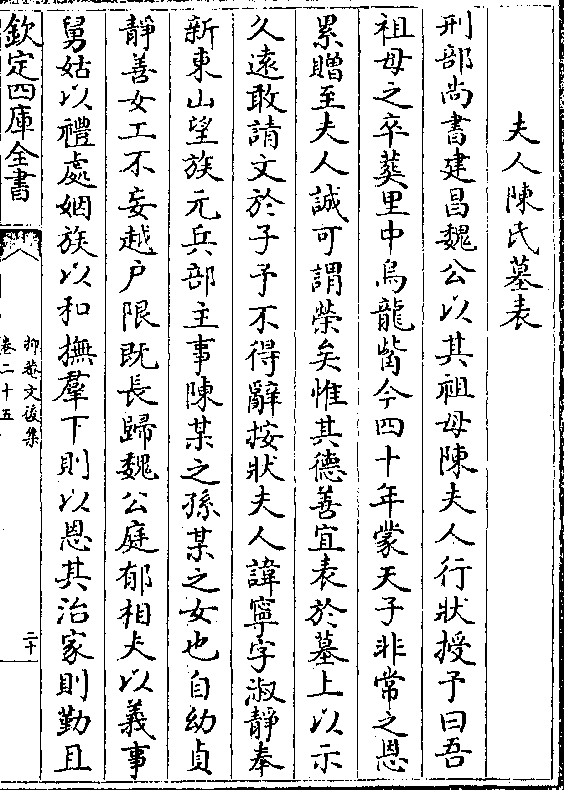 夫人陳氏墓表
刑部尚書建昌魏公以其祖母陳夫人行狀授予曰吾
祖母之卒葬里中烏龍嘴今四十年蒙天子非常之恩
累贈至夫人誠可謂榮矣惟其德善宜表於墓上以示
久遠敢請文於子予不得辭按狀夫人諱寧字淑靜奉
新東山望族元兵部主事陳某之孫某之女也自幼貞
靜善女工不妄越户限既長歸魏公庭郁相夫以義事
舅姑以禮處姻族以和撫羣下則以恩其治家則勤且
欽定四庫全書
抑菴文後集
卷二十五
二十